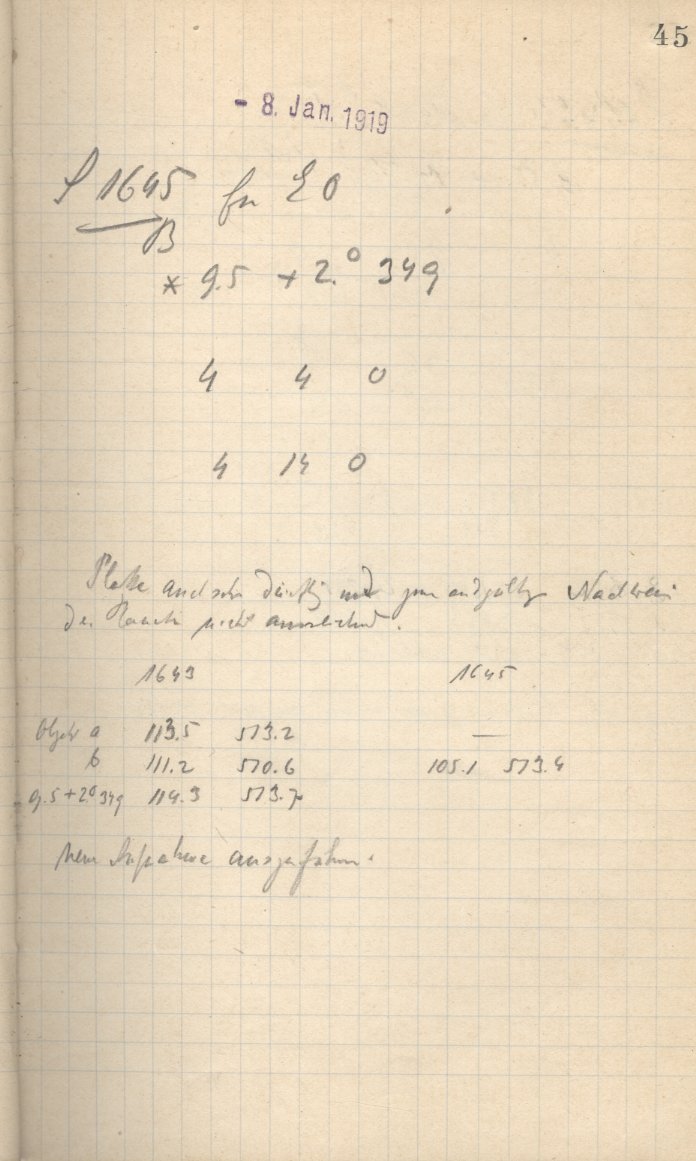 45
- 8. Jan. 1919
1645 für E 0
B
* 9.5 + 2.° 349
4 4 0
4 14 0
Platte auch sehr dürftig und zum endgültg Nachweis
der nicht ausreichend.
1643 1645
Objekt a 113.5 573.2 —
b 111.2 570.6 105.1 573.4
9.5 + 2.° 349 114.3 573.7
Neue Aufnahme ausgefahren.